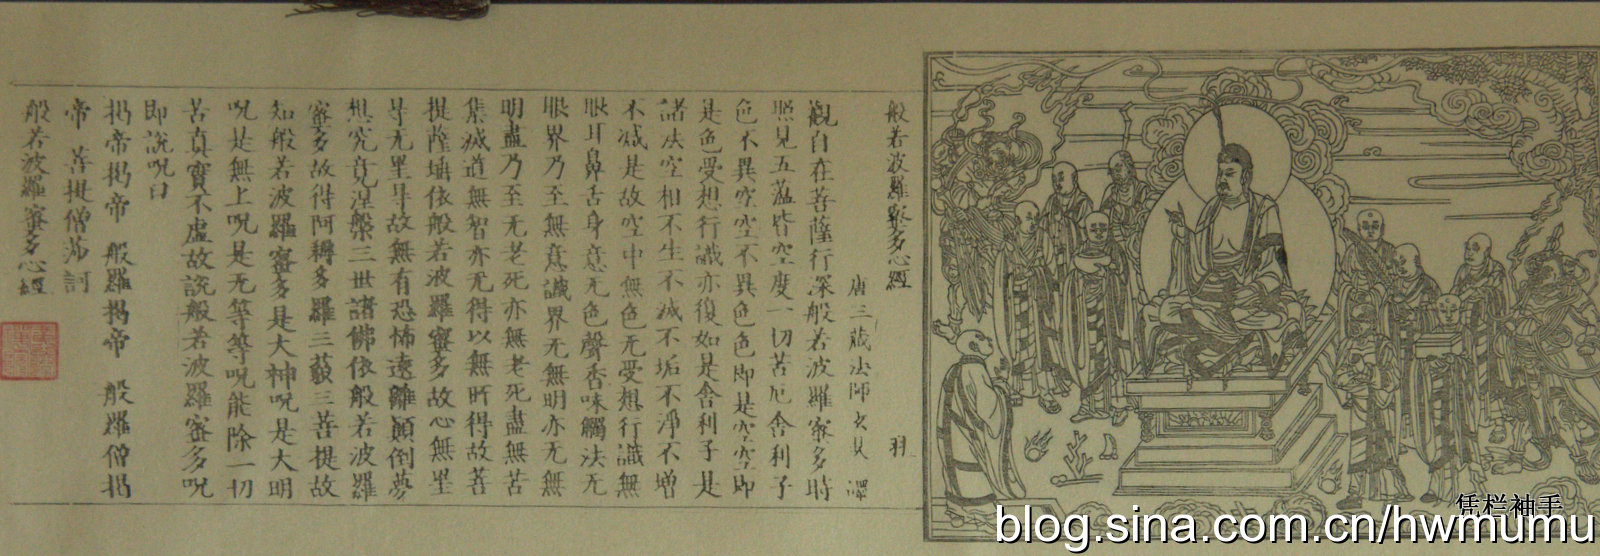 般若波羅蜜多心經 羽
唐三藏法師玄奘譯
觀自在菩薩行深般若波羅蜜多時
照見五蕰皆空度一切苦厄舍利子
色不異空空不異色色即是空空即
是色受想行識亦復如是舍利子是
諸法空相不生不滅不垢不淨不增
不減是故空中無色无受想行識無
眼耳鼻舌身意无色聲香味觸法无
眼界乃至無意識界无無明亦无無
明盡乃至无老死亦無老死盡無苦
集滅道無智亦无得以無所得故菩
提薩埵依般若波羅蜜多故心無罣
㝵无罣㝵故無有恐怖遠離顛倒夢
想究竟涅槃三世諸佛依般若波羅
蜜多故得阿耨多羅三藐三菩提故
知般若波羅蜜多是大神呪是大明
呪是無上呪是无等等呪能除一切
苦真實不虛故説般若波羅蜜多呪
即説呪曰
揭帝揭帝 般羅揭帝 般羅僧揭
帝 菩提僧莎訶
般若波羅蜜多心經
凭栏袖手
blog.sina.com.cn/hwmumu